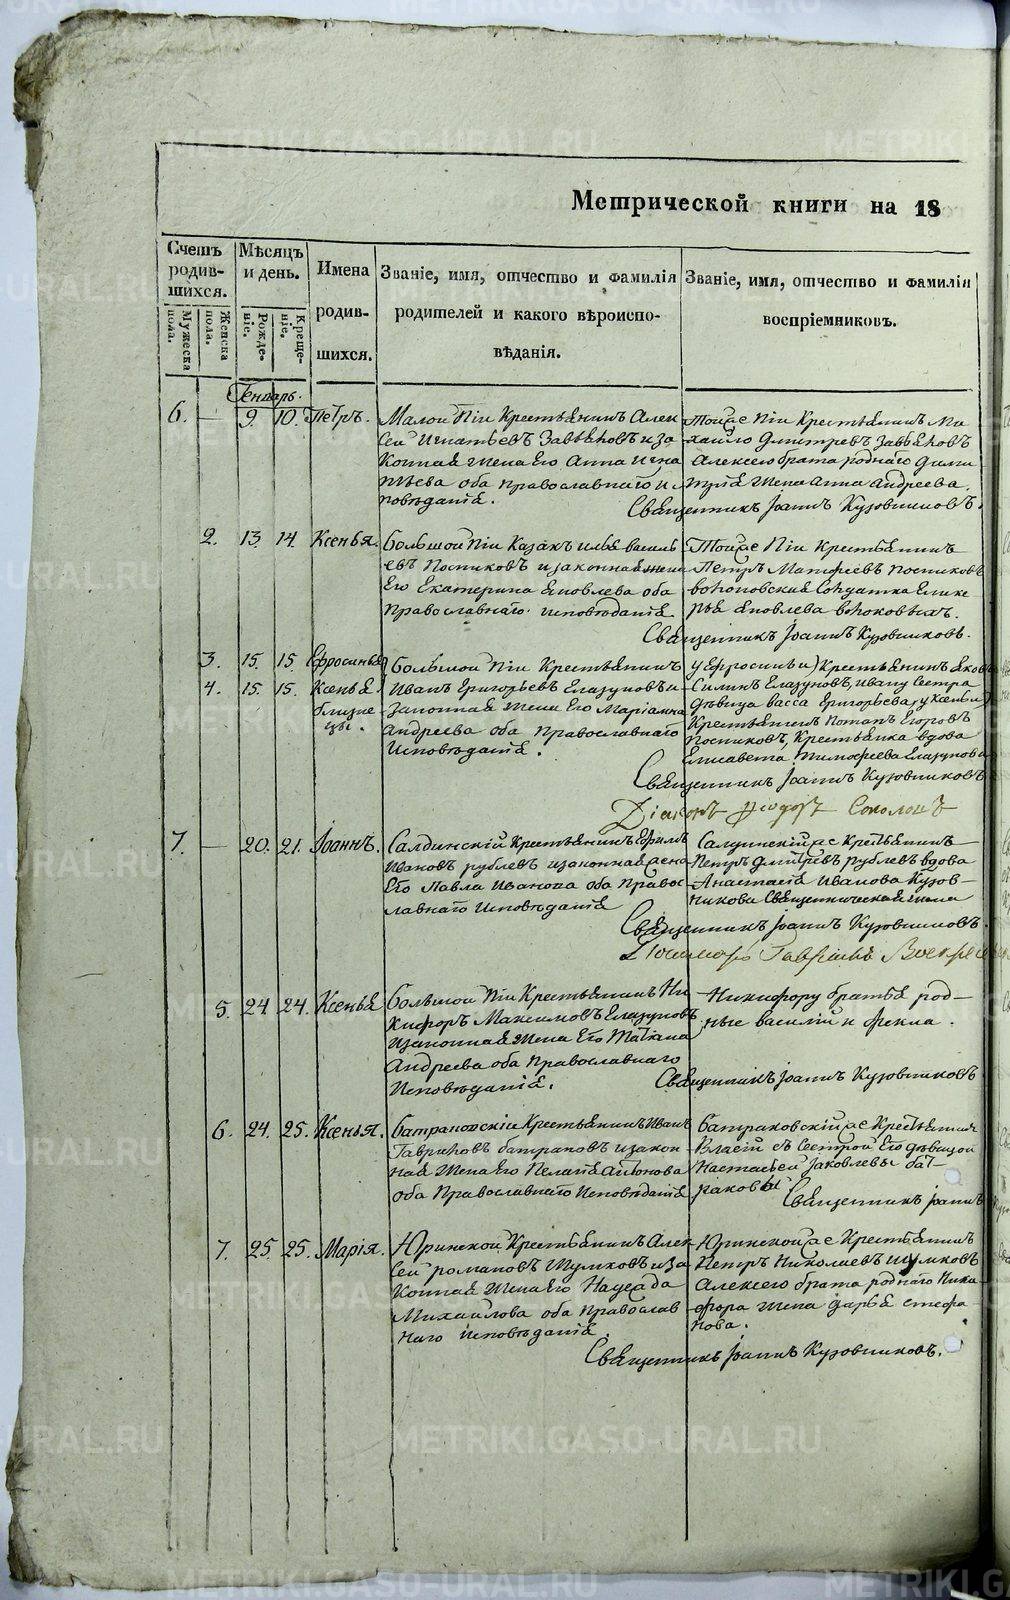 Метрической книги на 18
Счетъ родив-шихся.
Мужеска пола.
Женска пола.
Мѣсяцъ и день.
Рожде-ніе.
Креще-ніе.
Имена
родив-
шихся.
Званіе, имя, отчество и фамилія
родителей и какого вѣроиспо-
вѣданія.
Званіе, имя, отчество и фамилія
воспріемниковъ.
Генварь.
6. — 9. 10. Петръ.
Малой Пiи Крестьянинъ Алек-
сей Игнатьевъ и за
конная жена Его Анна Игна
тьева оба православнаго ис
повѣданія.
Тойже Пiи Крестьянинъ Ми
хайло Дмитревъ
Алексею брата роднаго Дми
трія жена Анна Андреева.
Священникъ Іоаннъ Кузовниковъ.
2. 13. 14. Ксенья.
Большой Пiи Казакъ Илья Василь
евъ Посниковъ и законная жена
Его Екатерина Яковлева оба
Православнаго исповѣданія.
Тойже Пiи Крестьянинъ
Петръ Матфеевъ Посниковъ
Яковлева
Священникъ Іоаннъ Кузовниковъ.
3. 15. 15. Ефросинья
4. 15. 15. Ксенья
близне
цы.
Большой Пiи Крестьянинъ
Иванъ Григорьевъ Елазуновъ и
Законная жена Его Маріанна
Андреева оба Православнаго
Исповѣданія.
у Ефросиньи) Крестьянинъ Яковъ
Силинъ Елазуновъ, Ивану сестра
дѣвица Васса Григорьева, у Ксеньи)
Крестьянинъ Потапъ Егоровъ
Посниковъ, Крестьянка вдова
Елисавета Тимофеева Елазунова
Священникъ Іоаннъ Кузовниковъ
Діаконъ Феодоръ Соколовъ
7. — 20. 21. Іоаннъ.
Салдинскій Крестьянинъ Ефимъ
Ивановъ Рублевъ и законная жена
Его Павла Иванова оба Правос-
лавнаго Исповѣданія
Салдинскій же Крестьянинъ
Петръ Дмитревъ Рублевъ вдова
Анастасія Иванова Кузов-
никова Священническая жена
Священникъ Іоаннъ Кузовниковъ.
Пономарь Гавріилъ
5. 24. 24. Ксенья
Большой Пiи Крестьянинъ Ни
кифоръ Максимовъ Елазуновъ
и законная жена Его Татіана
Андреева оба Православнаго
Исповѣданія.
Никифору братья род-
ные Василій и Фекла.
Священникъ Іоаннъ Кузовниковъ
6. 24. 25. Ксенья.
Батраковскій Крестьянинъ Иванъ
Гавриловъ Батраковъ и закон-
ная жена Его Пелагія Антонова
оба Православнаго Исповѣданія
Батраковскій же Крестьянинъ
Власій съ сестрой Его дѣвицой
Настасьей Іаковлевы Бат-
раковы
Священникъ Іоаннъ
7. 25. 25. Марія.
Юринской Крестьянинъ Алек
сей Романовъ Шумковъ и за
конная жена Его Надежда
Михайлова оба Православ
наго исповѣданія
Юринской же Крестьянинъ
Петръ Николаевъ Шумковъ
Алексею брата роднаго Ники
фора жена Дарья Стефа
нова.
Священникъ Іоаннъ Кузовниковъ.
METRIKI.GASO-URAL.RU